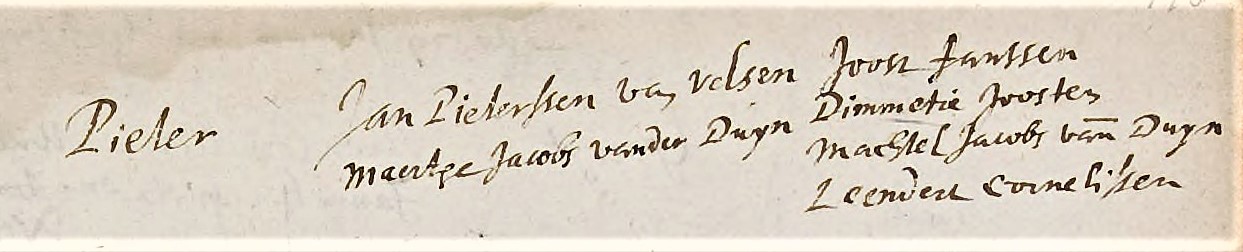 Pieter
Jan Pieterssen van Velsen
Maertge Jacobs vander Duyn
Joost Janssen
Dimmetie Joosten
Machtel Jacobs vañ Duyn
Leendert Cornelissen